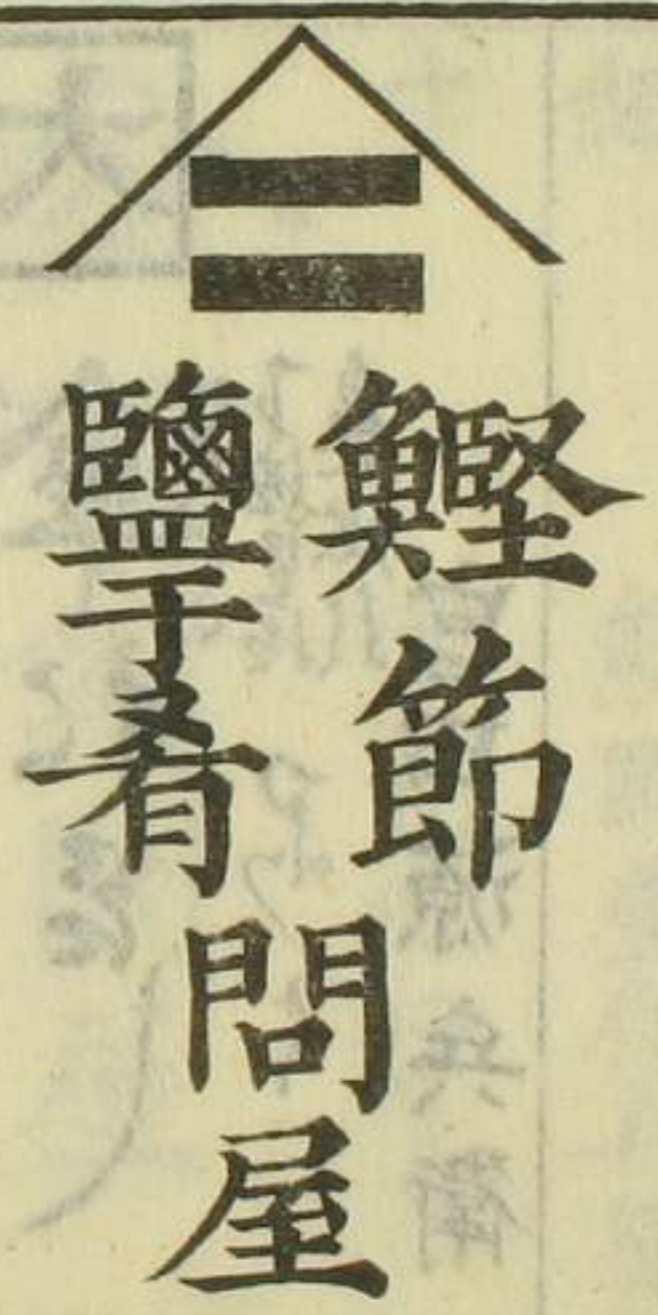 鰹節
鹽干肴
問屋